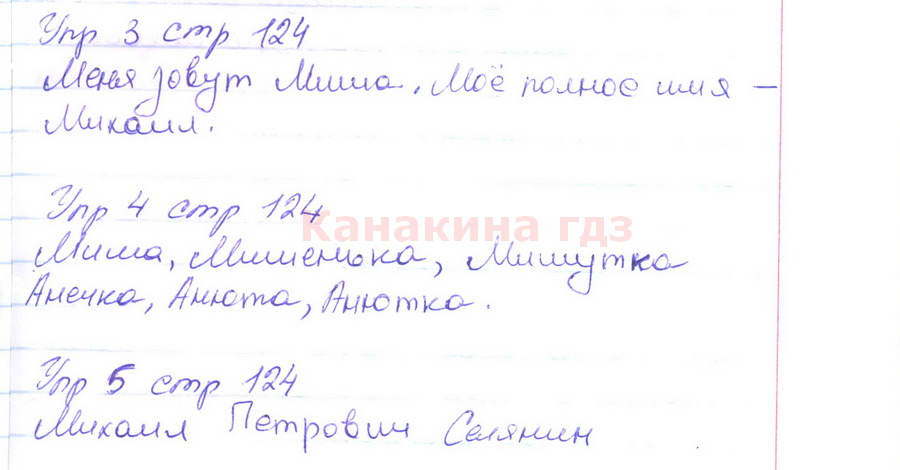 Упр 3 стр 124
Меня зовут Миша. Моё полное имя –
Михаил.
Упр 4 стр 124
Канакина гдз
Миша, Мишенька, Мишутка
Анечка, Анюта, Анютка.
Упр 5 стр 124
Михаил Петрович Селянин